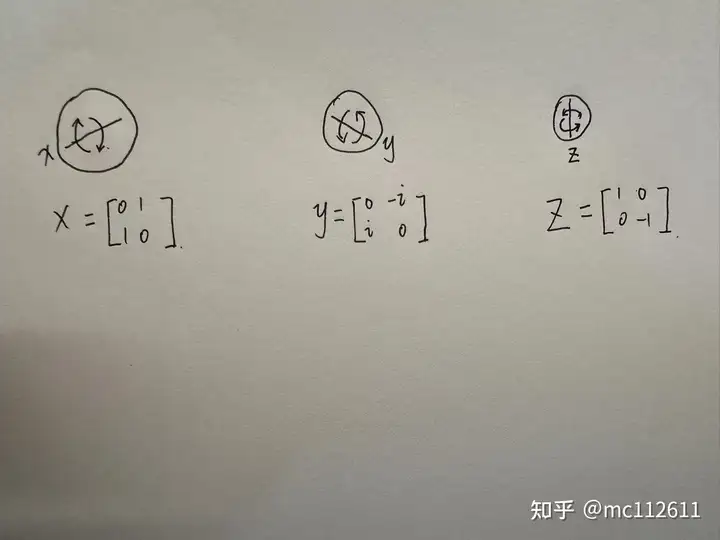 x
y
z
X = [0 1
1 0].
y = [0 -i
i 0]
Z = [1 0
0 -1].
知乎 @mc112611